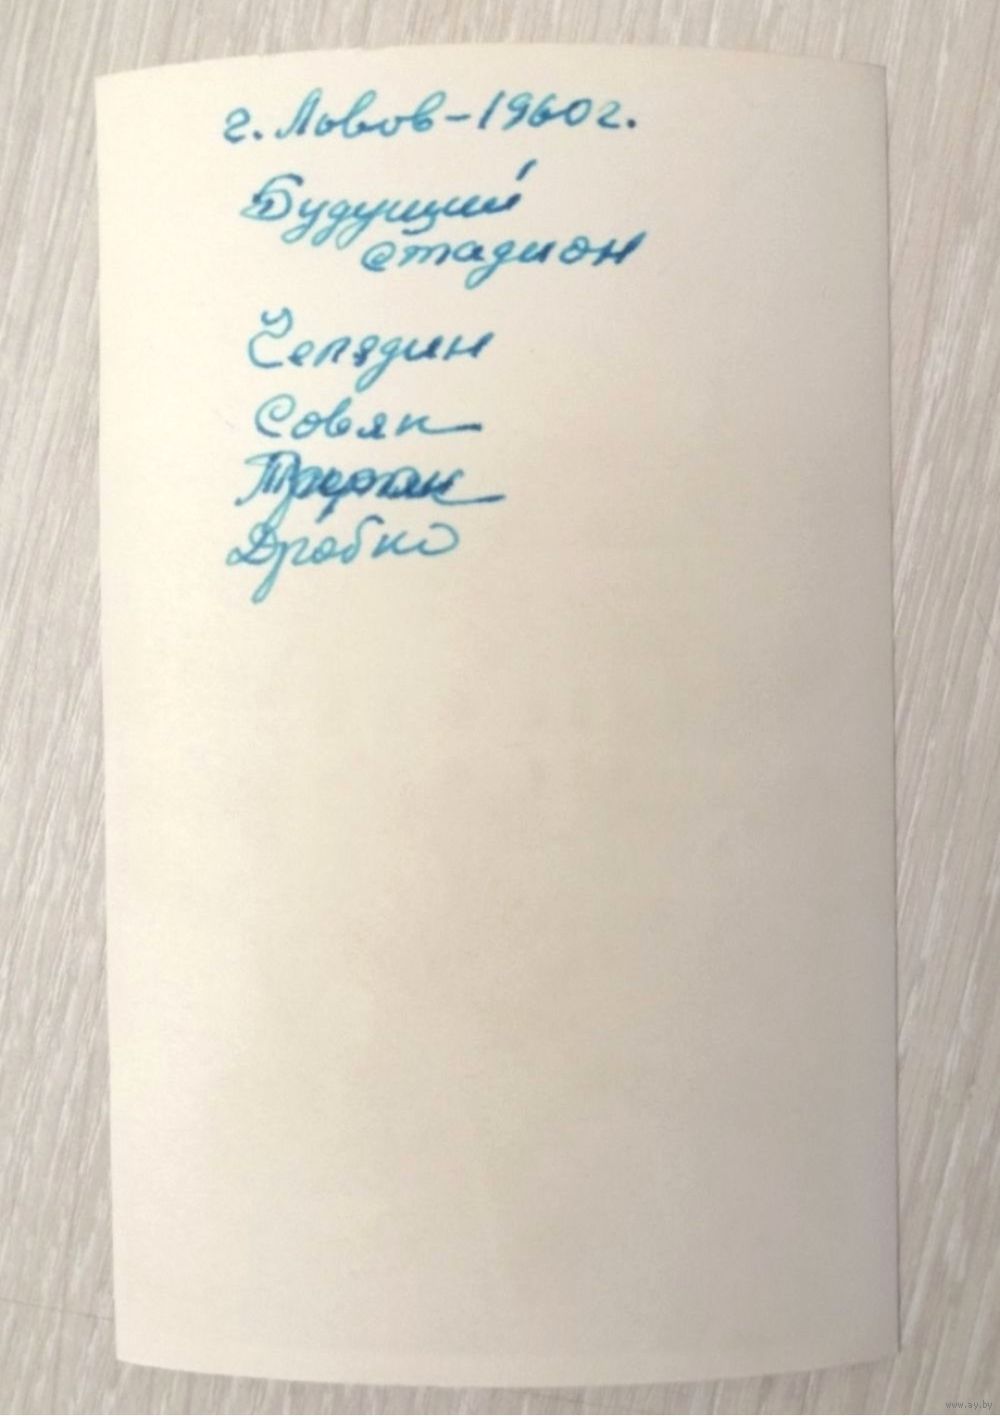 г. Львов - 1960г.
Будущий
стадион
Челядин
Совяк
Дробко
www.ay.by